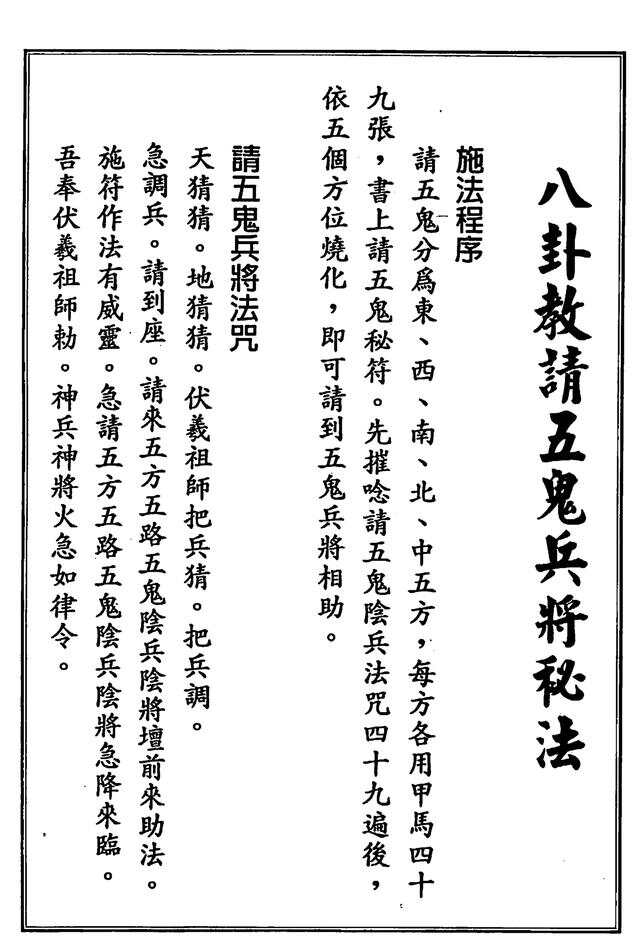 八卦教請五鬼兵將秘法
施法程序
請五鬼分爲東、西、南、北、中五方，每方各用甲馬四十
九張，書上請五鬼秘符。先摧唸請五鬼陰兵法咒四十九遍後，
依五個方位燒化，即可請到五鬼兵將相助。
請五鬼兵將法咒
天猜猜。地猜猜。伏羲祖師把兵猜。把兵調。
急調兵。請到座。請來五方五路五鬼陰兵陰將壇前來助法。
施符作法有威靈。急請五方五路五鬼陰兵陰將急降來臨。
吾奉伏羲祖師勅。神兵神將火急如律令。